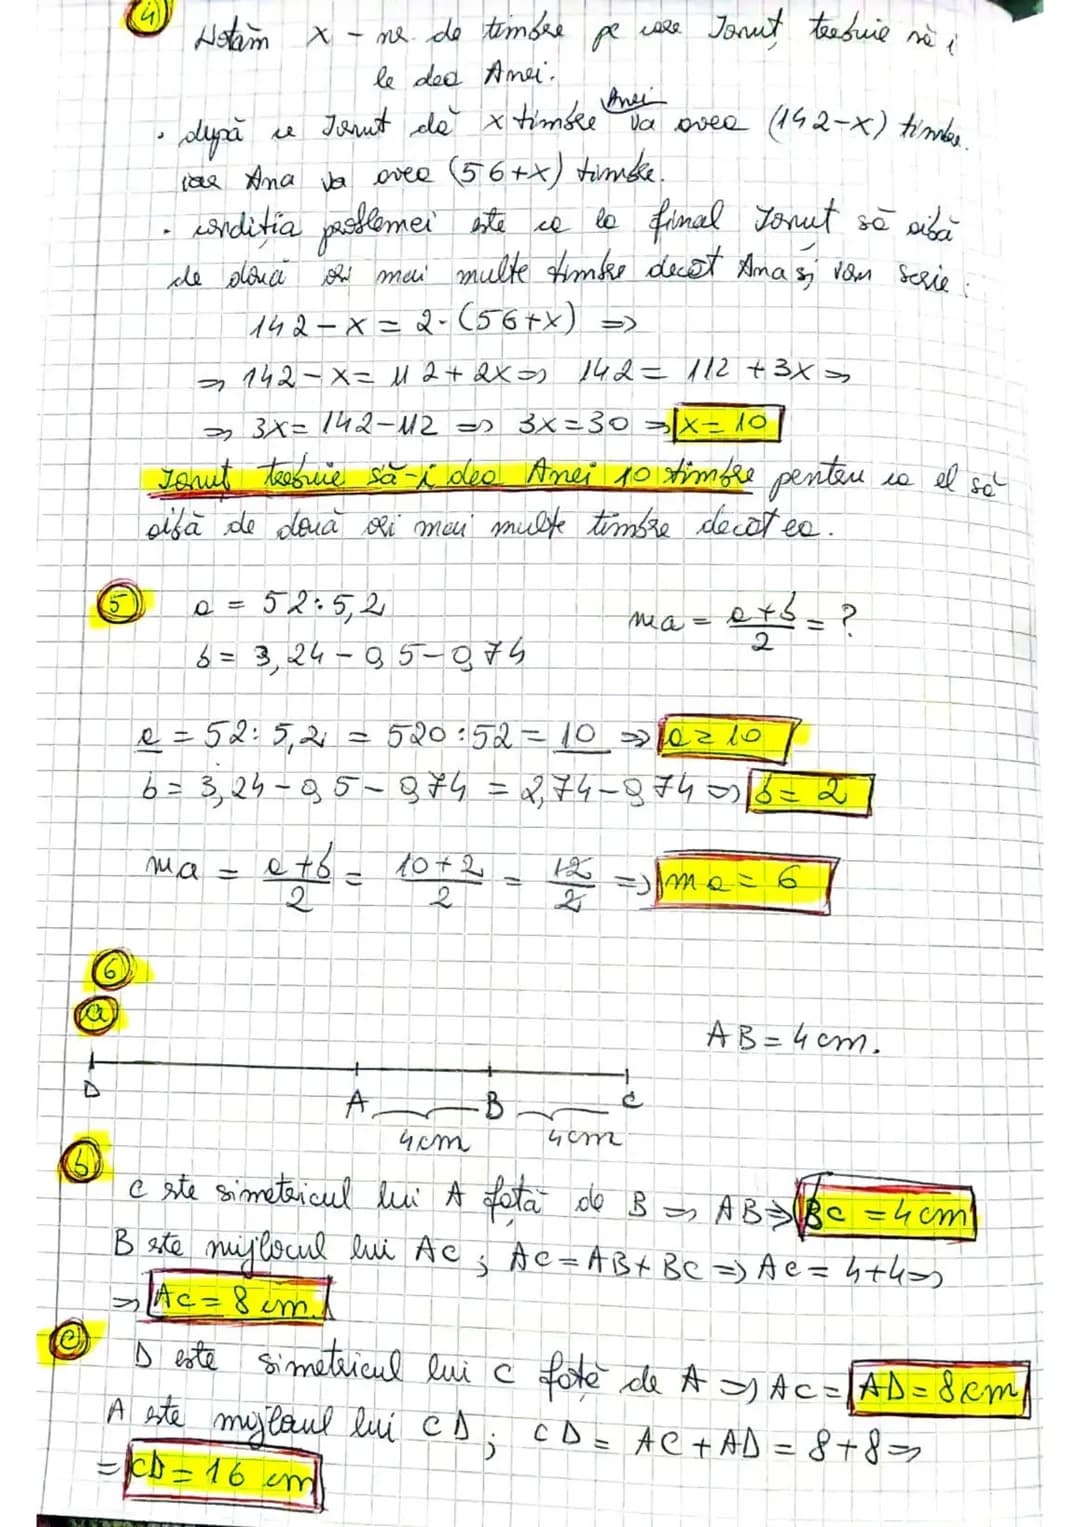 4
Notăm x - nr. de timbre pe care Ionuț trebuie să i
le dea Anei.
Anei
• după ce Ionuț dă x timbre va avea (142-x) timbre.
iar Ana va avea (56+x) timbre.
• condiția problemei este ca la final Ionuț să aibă
de două ori mai multe timbre decât Ana și vom scrie :
142 - x = 2·(56+x) =>
=> 142 - x = 112 + 2x => 142 = 112 + 3x =>
=> 3x = 142-112 => 3x = 30 => x = 10
Ionuț trebuie să-i dea Anei 10 timbre pentru ca el să
aibă de două ori mai multe timbre decât ea.
5 a = 52:5,2 ma = a+b/2 = ?
b = 3,24 - 0,5 - 0,74
a = 52:5,2 = 520:52 = 10 => a = 10
b = 3,24 - 0,5 - 0,74 = 2,74 - 0,74 => b = 2
ma = a+b/2 = 10+2/2 = 12/2 => ma = 6
6
a
AB = 4 cm.
D A B C
4cm 4cm
b
C este simetricul lui A față de B => AB => BC = 4cm
B este mijlocul lui AC ; AC = AB + BC => AC = 4+4 =>
=> AC = 8 cm.
c
D este simetricul lui C față de A => AC = AD = 8cm
A este mijlocul lui CD ; CD = AC + AD = 8+8 =>
= CD = 16 cm